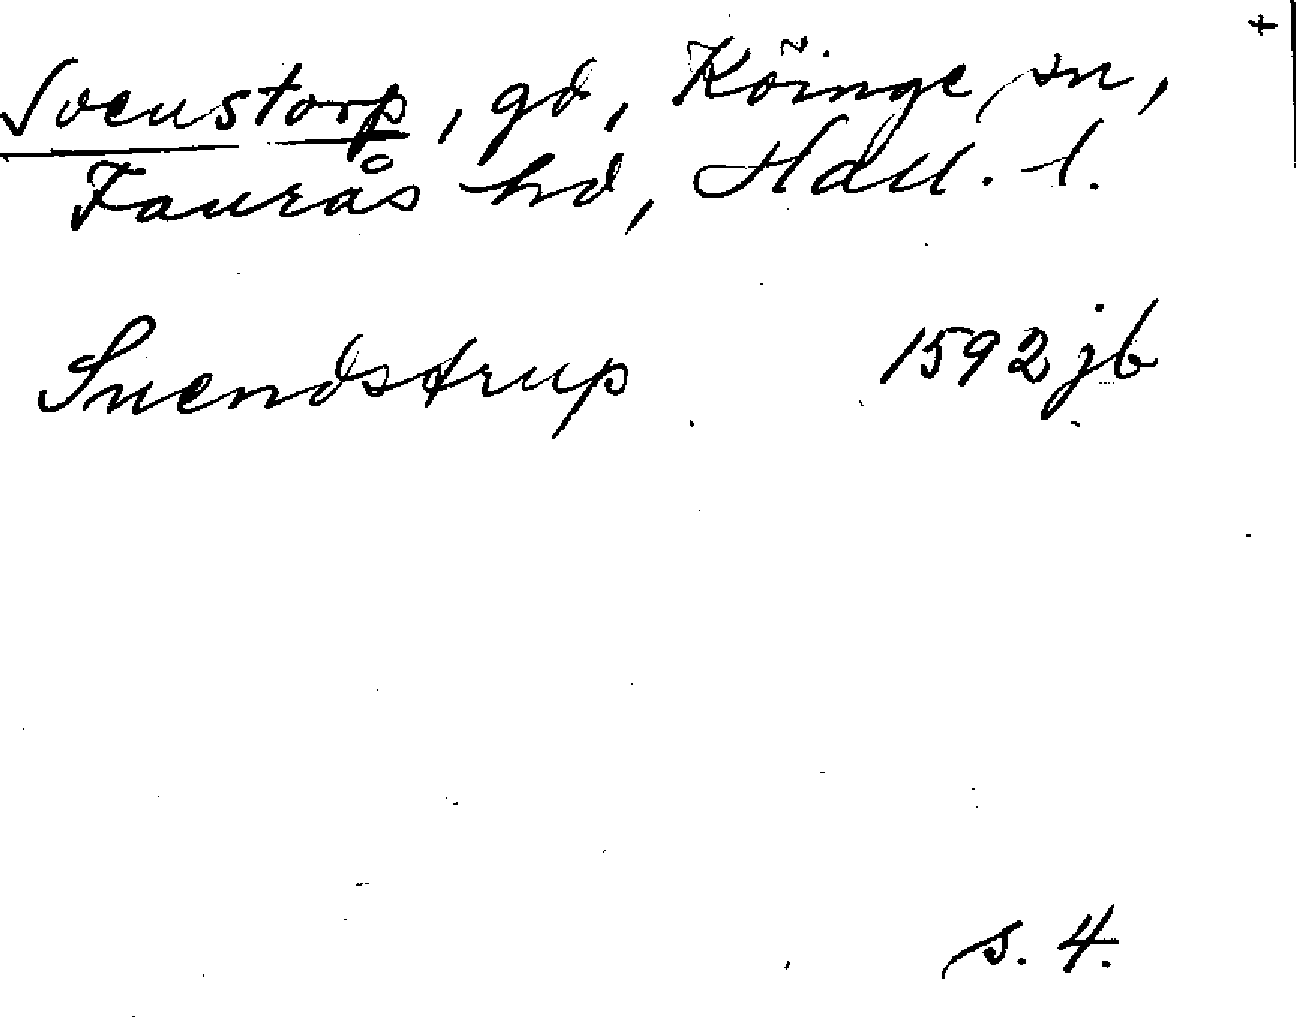 +
Svenstorp, gd, Köinge sn,
Faurås hd, Hall. l.
Suendstrup 1592 jb
s. 4.